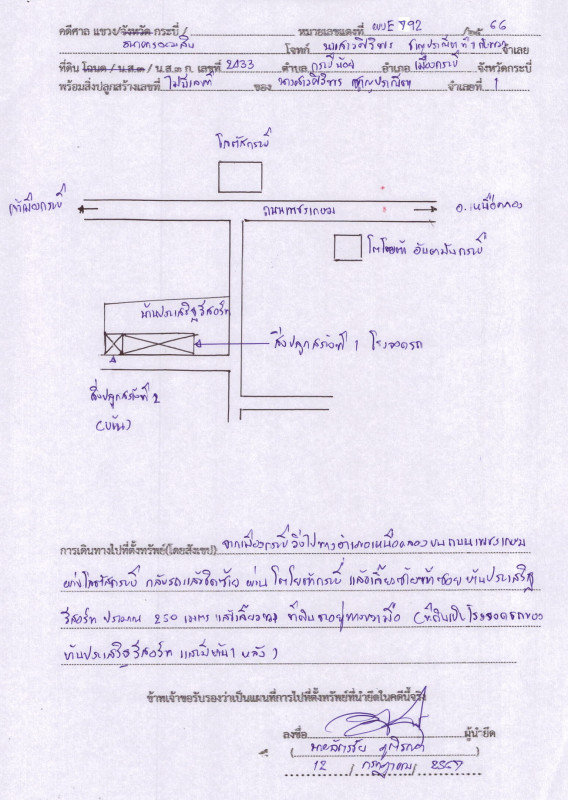 คดีศาล แขวง/จังหวัด กระบี่ / หมายเลขแดงที่ ผบE 792 /๒๕ 66
ธนาคารออมสิน โจทก์ นางสาวศิริพร ที่ 1 กับพวก จำเลย
ที่ดิน โฉนด / น.ส.๓ / น.ส.๓ ก. เลขที่ 2033 ตำบล กระบี่น้อย อำเภอ เมืองกระบี่ จังหวัดกระบี่
พร้อมสิ่งปลูกสร้างเลขที่ ไม่มีเลขที่ ของ นางสาวศิริพร จำเลยที่ 1
โลตัสกระบี่
เข้าเมืองกระบี่
ถนนเพชรเกษม
อ.เหนือคลอง
โตโยต้า อันดามันกระบี่
บ้านประเสริฐรีสอร์ท
สิ่งปลูกสร้างที่ 1 โรงจอดรถ
สิ่งปลูกสร้างที่ 2
การเดินทางไปที่ตั้งทรัพย์(โดยสังเขป) จากเมืองกระบี่ วิ่งไปทางอำเภอเหนือคลอง บนถนนเพชรเกษม
ผ่านโลตัสกระบี่ กลับรถแล้วชิดซ้าย ผ่านโตโยต้ากระบี่ แล้วเลี้ยวซ้ายเข้าซอย บ้านประเสริฐ
รีสอร์ท ประมาณ 250 เมตร แล้วเลี้ยวขวา ที่ดินอยู่ทางขวามือ (ที่ดินเป็นโรงจอดรถของ
บ้านประเสริฐรีสอร์ท และมีบ้าน 1 หลัง)
ข้าพเจ้าขอรับรองว่าเป็นแผนที่การไปที่ตั้งทรัพย์ที่นำยึดในคดีนี้จริง
ลงชื่อ ผู้นำยึด
12 / กรกฎาคม / 2567